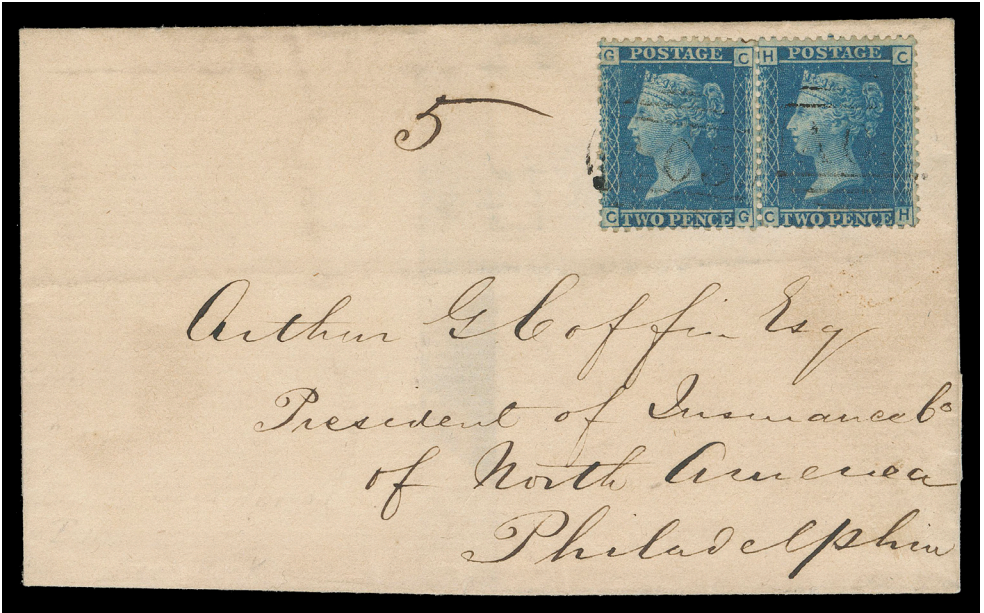 G POSTAGE C H POSTAGE C
C TWO PENCE G C TWO PENCE H
5
Arthur G Coffin Esq
President of Insurance Co
of North America
Philadelphia